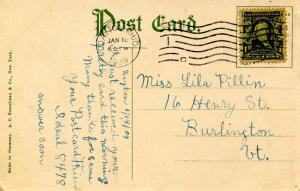 Post Card.
JAN 14
1/14/09
Just received your
pretty card this morning
Many thanks for same
Your Postcard friend
Ideal 8478
answer soon
Miss Lila Pillin
16 Henry St.
Burlington
Vt.
Made in Germany. A. C. Bosselman & Co., New York.